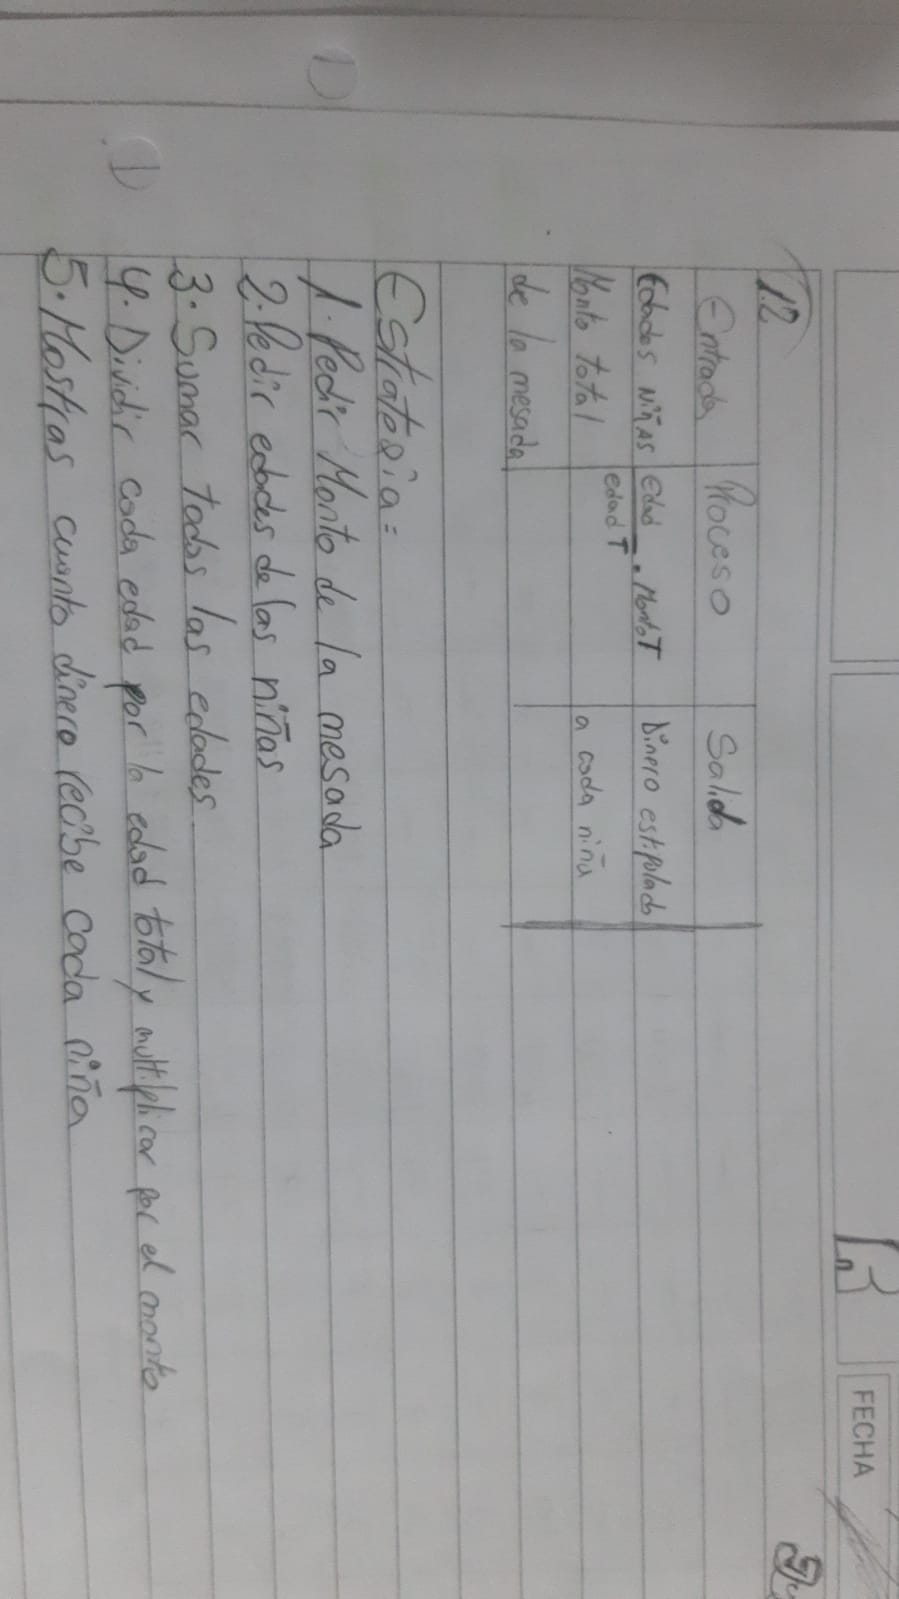 FECHA
12
Entrada Proceso Salida
Edades Niñas edad . MontoT Dinero estipulado
Monto total edad T a cada niña
de la mesada
Estrategia=
1. Pedir Monto de la mesada
2. Pedir edades de las niñas
3. Sumar todas las edades
4. Dividir cada edad por la edad total y multiplicar por el monto
5. Mostras cuanto dinero recibe cada niña